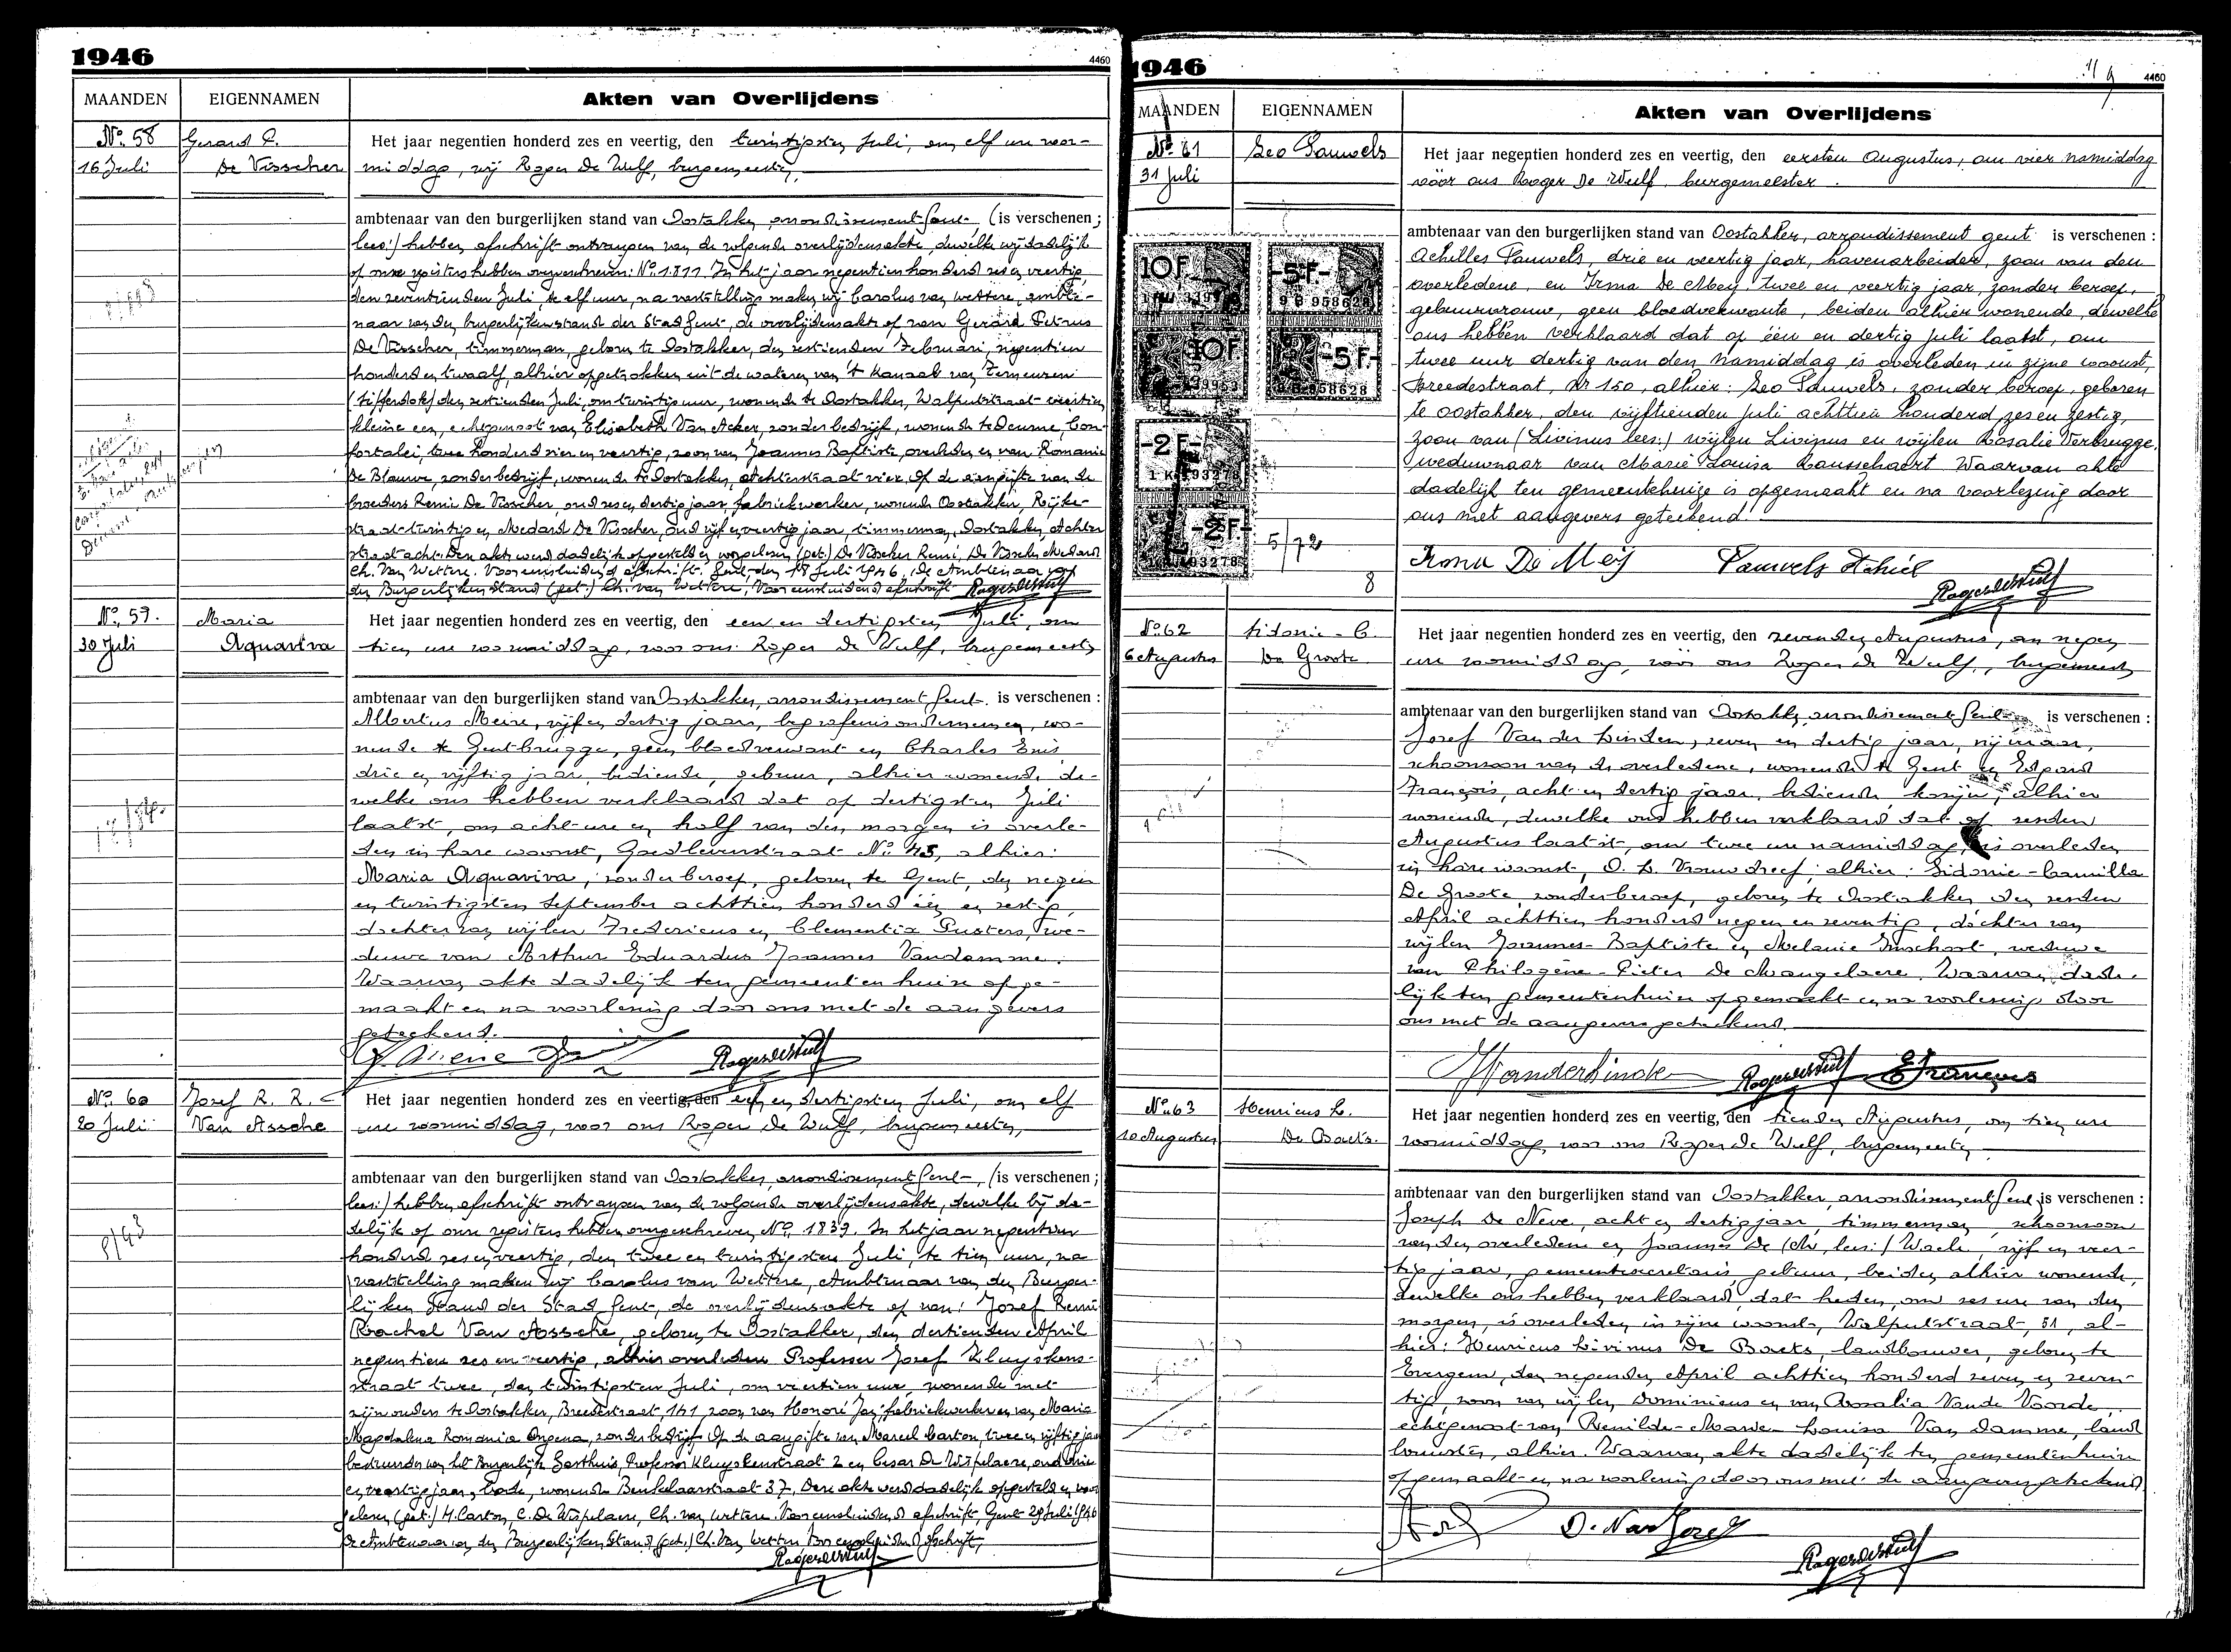 1946
4460
MAANDEN EIGENNAMEN Akten van Overlijdens
No. 58 Gerard P. Het jaar negentien honderd zes en veertig, den twintigsten Juli, om elf ure voor-
16 Juli De Visscher middag, wij Roger De Wulf, burgemeester,
ambtenaar van den burgerlijken stand van Oostakker, arrondissement Gent, (is verschenen ;
lees:) hebben afschrift ontvangen van de volgende overlijdensakte, dewelke wij dadelijk
op onze registers hebben overgeschreven: No. 1811 In het jaar negentienhonderd zes en veertig,
den zeventienden Juli, te elf uur, na vaststelling maken wij Carolus van Wettere, ambte-
naar van den burgerlijken stand der Stad Gent, de overlijdensakte op van Gerard Petrus
De Visscher, timmerman, geboren te Oostakker, den zestienden Februari, negentien
honderd en twaalf, alhier opgetrokken uit de wateren van 't Kanaal van Terneuzen
(Sifferdok) den zestienden Juli, om twintig uur, wonende te Oostakker, Walputstraat veertien
kleine een, echtgenoot van Elisabeth Van Acker, zonder bedrijf, wonende te Deurne, Con-
fortalei, twee honderd vier en veertig, zoon van Joannes Baptiste, overleden en van Romanie
De Blauwe, zonder bedrijf, wonende te Oostakker, Achterstraat vier. Op de aangifte van de
broeders Remi De Visscher, oud zes en dertig jaar, fabriekwerker, wonende Oostakker, Rijke-
straat twintig en Medard De Visscher, oud vijf en veertig jaar, timmerman, Oostakker, Achter
straat acht. Den akte werd dadelijk opgesteld en voorgelezen (get.) De Visscher Remi, De Visscher Medard
Ch. Van Wettere. Voor eensluidend afschrift. Gent, den 18 Juli 1946. De Ambtenaar van
den Burgerlijken Stand (get.) Ch. van Wettere, Voor eensluidend afschrift Roger de Wulf
No. 59. Maria Het jaar negentien honderd zes en veertig, den een en dertigsten Juli, om
30 Juli Aquaviva tien ure voormiddag, voor ons Roger de Wulf, burgemeester
ambtenaar van den burgerlijken stand van Oostakker, arrondissement Gent. is verschenen :
Albertus Meire, vijf en dertig jaar, begrafenisondernemer, wo-
nende te Gentbrugge, geen bloedverwant en Charles Enis
drie en vijftig jaar, bediende, gebuur, alhier wonende, de-
welke ons hebben verklaard dat op dertigsten Juli
laatst, om acht ure en half van den morgen is overle-
den in hare woonst, Goedlevenstraat No. 45, alhier:
Maria Aquaviva, zonder beroep, geboren te Gent, den negen
en twintigsten September achttien honderd één en zestig,
dochter van wijlen Fredericus en Clementia Gusters, we-
duwe van Arthur Eduardus Joannes Vandamme.
Waarvan akte dadelijk ten gemeentenhuize opge-
maakt en na voorlezing door ons met de aangevers
geteekend.
Roger de Wulf
No. 60 Jozef R. R. Het jaar negentien honderd zes en veertig, den een en dertigsten Juli, om elf
20 Juli Van Assche ure voormiddag, voor ons Roger de Wulf, burgemeester,
ambtenaar van den burgerlijken stand van Oostakker, arrondissement Gent, (is verschenen ;
lees:) hebben afschrift ontvangen van de volgende overlijdensakte, dewelke wij da-
delijk op onze registers hebben overgeschreven No. 1839. In het jaar negentien
honderd zes en veertig, den twee en twintigsten Juli, te tien uur, na
vaststelling maken wij Carolus van Wettere, Ambtenaar van den Burger-
lijken Stand der Stad Gent, de overlijdensakte op van: Jozef Remi
Rachel Van Assche, geboren te Oostakker, den dertienden April
negentien zes en veertig, alhier overleden Professor Jozef Kluyskens-
straat twee, den twintigsten Juli, om veertien uur, wonende met
zijn ouders te Oostakker, Breedestraat, 141, zoon van Honoré Jan, fabriekwerker en van Maria
Magdalena Romania Ongena, zonder bedrijf. Op de aangifte van Marcel Carton, twee en vijftig jaar
bestuurder van het Burgerlijk Gasthuis, Professor Kluyskenstraat 2 en Cesar De Wispelaere, oud drie
en veertig jaar, bode, wonende Beukelaarstraat 37. Deze akte werd dadelijk opgesteld en voor
gelezen (get.) M. Carton, C. De Wispelaere, Ch. van Wettere. Voor eensluidend afschrift, Gent 29 Juli 1946
De Ambtenaar van den Burgerlijken Stand (get.) Ch. Van Wettere Voor eensluidend afschrift,
Roger de Wulf
8/43
1946
4460
MAANDEN EIGENNAMEN Akten van Overlijdens
No. 61 Leo Pauwels Het jaar negentien honderd zes en veertig, den eersten Augustus, om vier namiddag
31 Juli vóór ons Roger De Wulf, burgemeester.
ambtenaar van den burgerlijken stand van Oostakker, arrondissement Gent is verschenen :
Achilles Pauwels, drie en veertig jaar, havenarbeider, zoon van den
overledene, en Irma De Meij twee en veertig jaar, zonder beroep,
gebuurvrouw, geen bloedverwante, beiden alhier wonende, dewelke
ons hebben verklaard dat op één en dertig Juli laatst, om
twee uur dertig van den namiddag is overleden in zijne woonst,
Breedestraat, Nr 150, alhier: Leo Pauwels, zonder beroep, geboren
te Oostakker, den vijftienden Juli achttien honderd zes en zestig,
zoon van (Livinus lees:) wijlen Livinus en wijlen Rosalie Verbrugge,
weduwnaar van Marie Louisa Rousschaert Waarvan akte
dadelijk ten gemeentehuize is opgemaakt en na voorlezing door
ons met aangevers geteekend.
10F
-5F-
9B 958628
10F
-5F-
9B 958628
-2F-
-2F-
5/72
8
Irma De Meij Pauwels Achiel
Roger de Wulf
No. 62 Sidonie-C. Het jaar negentien honderd zes en veertig, den zevenden Augustus, om negen
6 Augustus De Groote ure voormiddag, vóór ons Roger de Wulf, burgemeester
ambtenaar van den burgerlijken stand van Oostakker, arrondissement Gent is verschenen :
Jozef Van der Linden, zeven en dertig jaar,
schoonzoon van de overledene, wonende te Gent en Edgard
François, acht en dertig jaar, bediende, kozijn, alhier
wonende, dewelke ons hebben verklaard dat op zesden
Augustus laatst, om twee ure namiddag, is overleden
in hare woonst, O. L. Vrouwdreef, alhier: Sidonie-Camilla
De Groote, zonder beroep, geboren te Oostakker den zesden
April achttien honderd negen en zeventig, dochter van
wijlen Joannes-Baptiste en Melanie Imschoot, weduwe
van Philogène-Pieter De Mangelaere. Waarvan dade-
lijk ten gemeentenhuize opgemaakt en na voorlezing door
ons met de aangevers geteekend.
J Vanderlinden Roger de Wulf E François
No. 63 Henricus L. Het jaar negentien honderd zes en veertig, den tienden Augustus, om tien ure
10 Augustus De Baets. voormiddag, voor ons Roger De Wulf, burgemeester
ambtenaar van den burgerlijken stand van Oostakker, arrondissement Gent is verschenen :
Joseph De Neve, acht en dertig jaar, timmerman, schoonzoon
van den overledene en Joannes De (Ch, lees:) Waele, vijf en veer-
tig jaar, gemeentesecretaris, gebuur, beiden alhier wonende,
dewelke ons hebben verklaard, dat heden, om zes ure van den
morgen, is overleden in zijne woonst, Walputstraat, 51, al-
hier: Henricus Livinus De Baets, landbouwer, geboren te
Evergem, den negenden April achttien honderd zeven en zeven-
tig, zoon van wijlen Dominicus en van Rosalia Vande Voorde,
echtgenoot van Remilde-Marie-Louisa Van Damme, land
bouwster, alhier. Waarvan akte dadelijk ten gemeentenhuize
opgemaakt en na voorlezing door ons met de aangevers geteekend.
D. Neve Jozef
Roger de Wulf